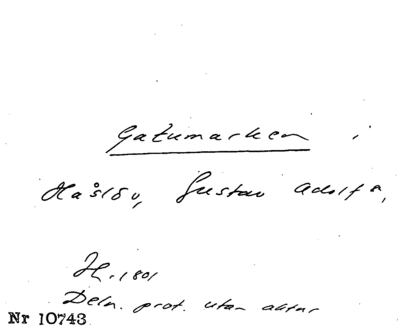 Gatumarken i
Håslöv, Gustav Adolfs,
H. 1801
Deln. prot. utan aktnr
Nr 10743